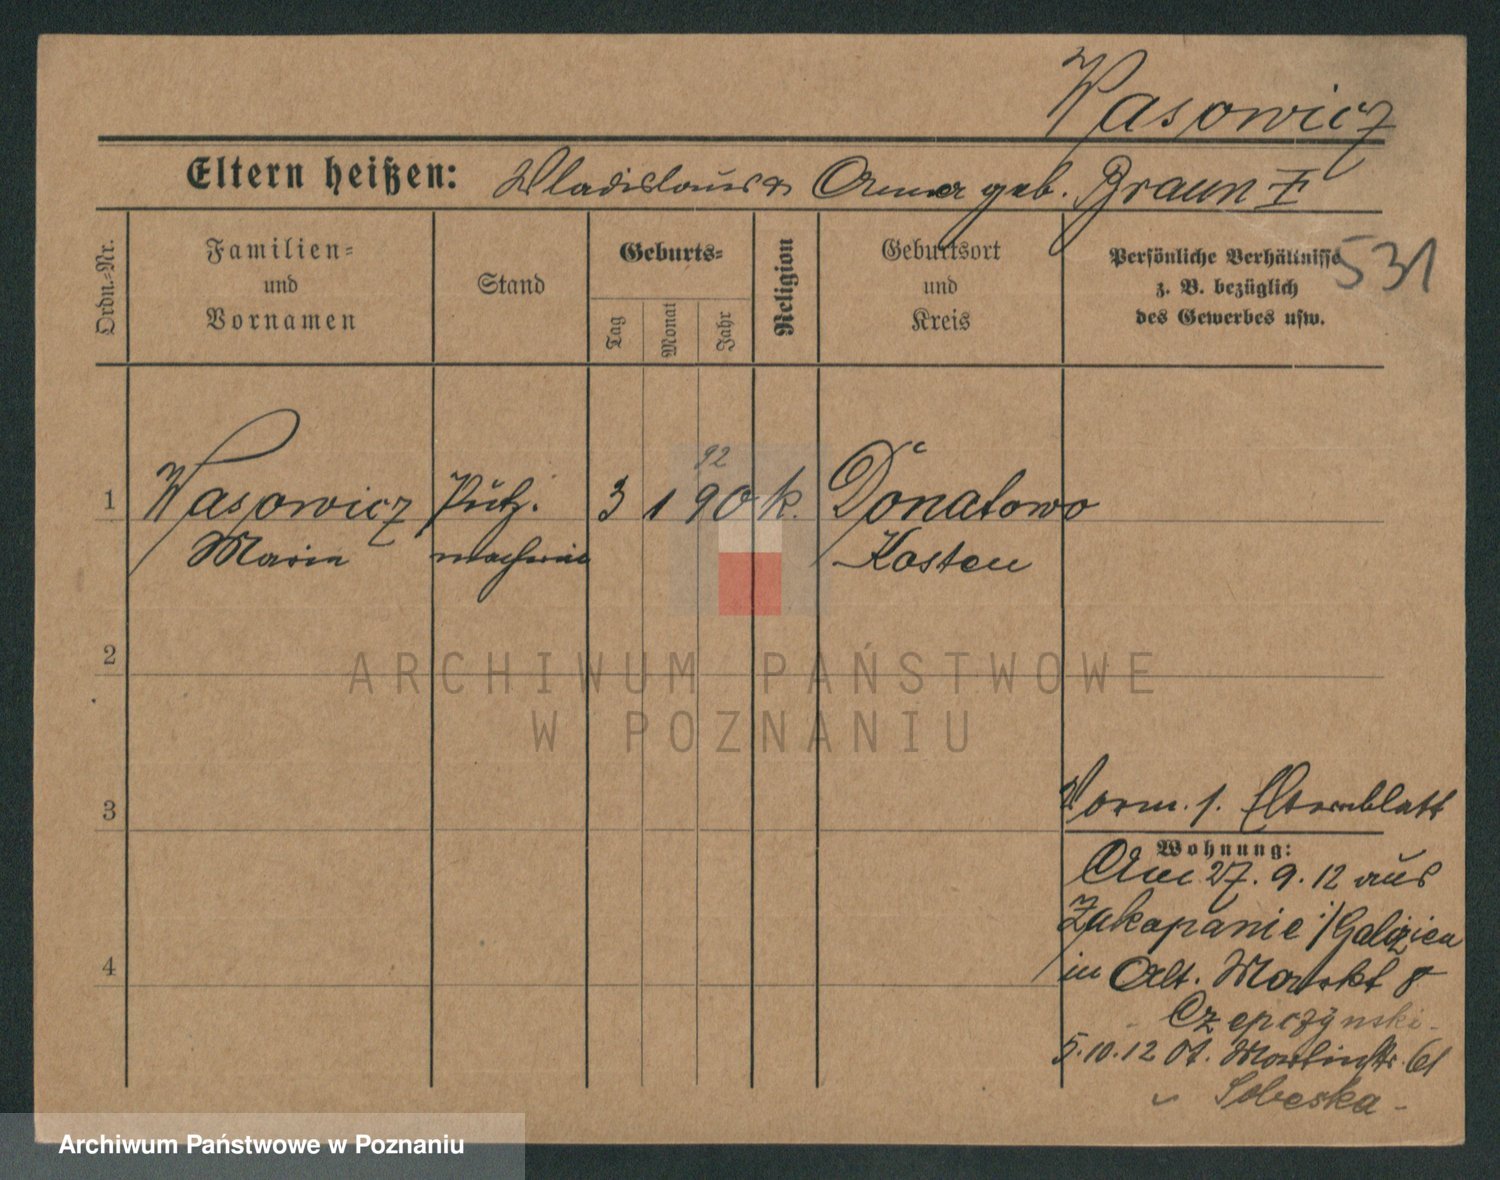 Wasowicz
Eltern heißen: Wladislaus u. Anna geb. Braun I
531
Ordn.-Nr.
Familien-
und
Vornamen
Stand
Geburts-
Tag
Monat
Jahr
Religion
Geburtsort
und
Kreis
Persönliche Verhältnisse
z. B. bezüglich
des Gewerbes usw.
92
1 Wasowicz Putz- 3 1 90 k. Donatowo
Maria macherin Kosten
2
ARCHIWUM PAŃSTWOWE
W POZNANIU
3
Vorm. s. Elternblatt
Wohnung:
Am 27. 9. 12 aus
Zakopanie i/Galizien
4
in Alt. Markt 8
Czepczynski
5.10.12 St. Martinstr. 61
Sobeska
Archiwum Państwowe w Poznaniu